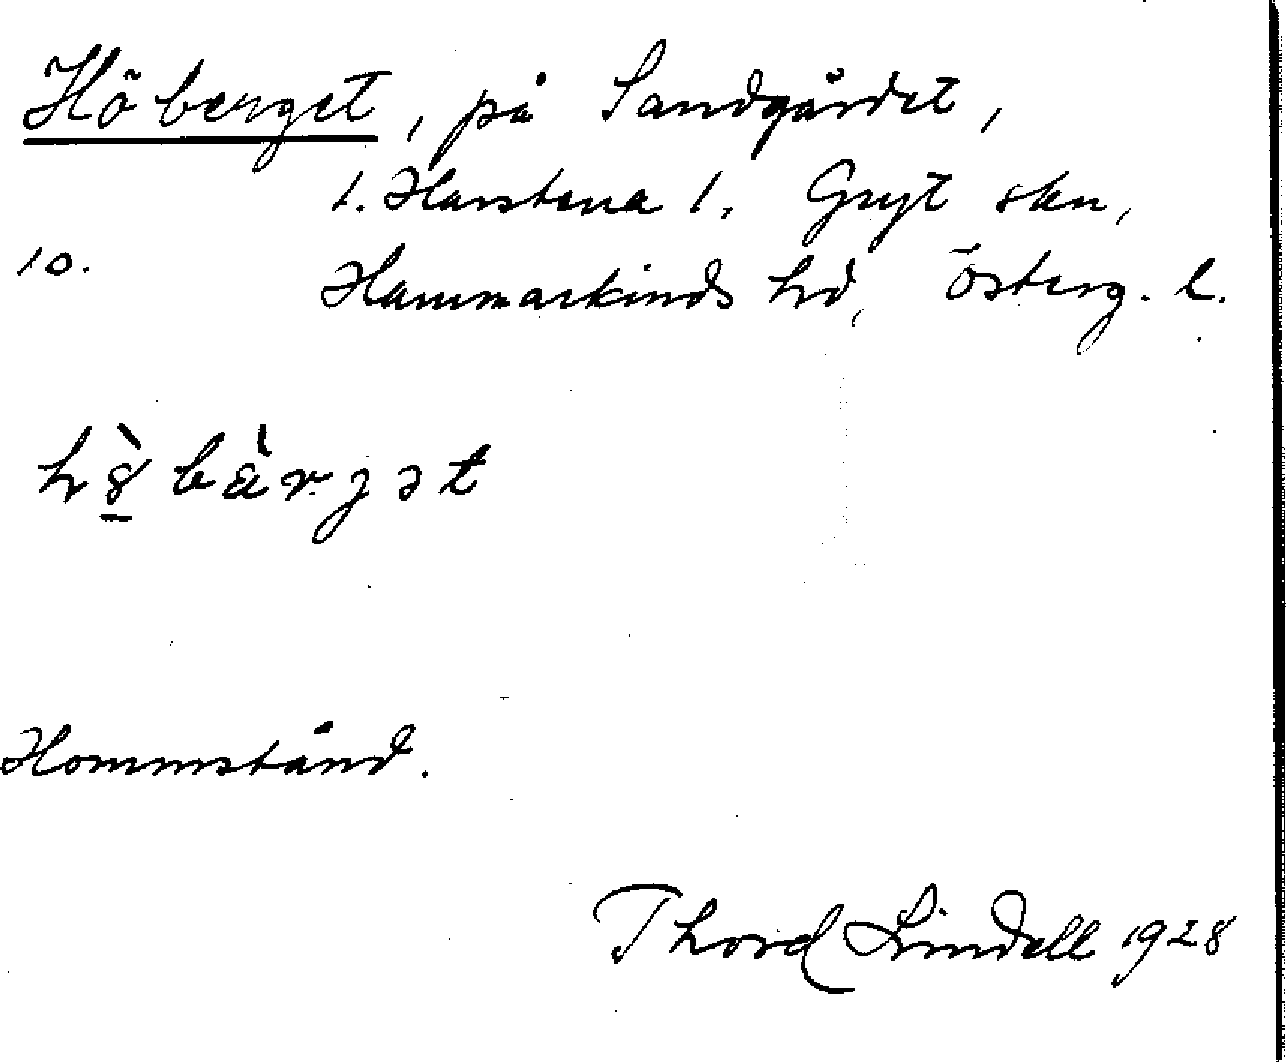 Höberget, på Sandgärdet,
1. Harstena 1, Gryt skn,
10.
Hammarkinds hd, Österg. l.
hö̀bä̀rjət
Hommstånd.
Thord Lindell 1928